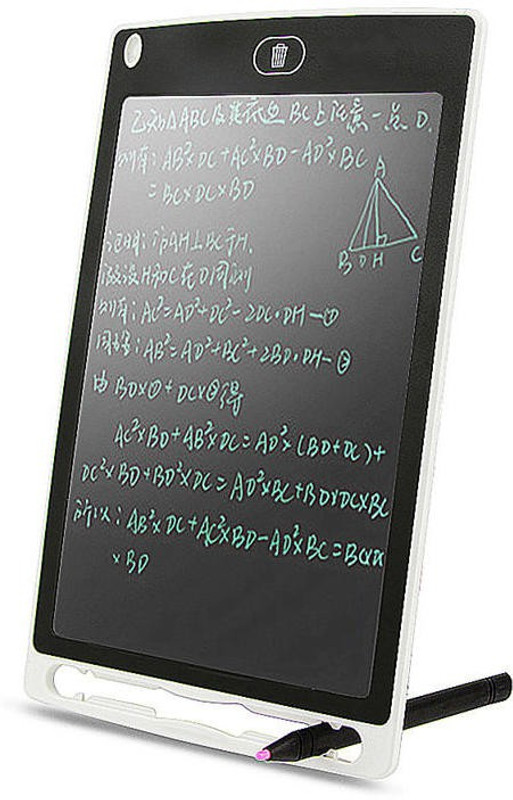 已知△ABC及其底边BC上任意一点D.
则有:AB²×DC+AC²×BD-AD²×BC
=BC×DC×BD
A
B D H C
证明:作AH⊥BC于H,
假设H和C在D同侧
则有:AC²=AD²+DC²-2DC·DH-①
同理:AB²=AD²+BC²+2BD·DH-②
由BD×①+DC×②得
AC²×BD+AB²×DC=AD²×(BD+DC)+
DC²×BD+BD²×DC=AD²×BC+BD×DC×BC
所以:AB²×DC+AC²×BD-AD²×BC=BC×DC
×BD